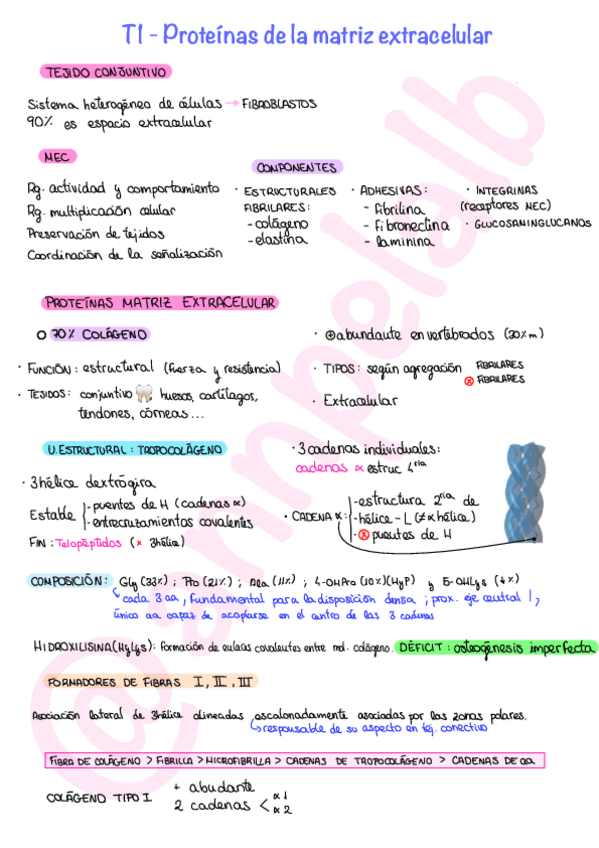 T1 - Proteínas de la matriz extracelular
TEJIDO CONJUNTIVO
Sistema heterogéneo de células → FIBROBLASTOS
90% es espacio extracelular
MEC
COMPONENTES
Rg. actividad y comportamiento
Rg. multiplicación celular
Preservación de tejidos
Coordinación de la señalización
· ESTRUCTURALES
FIBRILARES:
- colágeno
- elastina
· ADHESIVAS:
- fibrilina
- fibronectina
- laminina
· INTEGRINAS
(receptores MEC)
· GLUCOSAMINGLUCANOS
PROTEÍNAS MATRIZ EXTRACELULAR
70% COLÁGENO
· ⊕ abundante en vertebrados (30% m)
· FUNCIÓN: estructural (fuerza y resistencia)
· TIPOS: según agregación FIBRILARES
ⓧ FIBRILARES
· TEJIDOS: conjuntivo huesos, cartílagos,
tendones, córneas...
· Extracelular
U.ESTRUCTURAL: TROPOCOLÁGENO
· 3 hélice dextrógira
Estable
- puentes de H (cadenas α)
- entrecruzamientos covalentes
FIN: Telopéptidos (x 3hélice)
· 3 cadenas individuales:
cadenas α estruc 4ria
· CADENA α:
- estructura 2ria de
- hélice - L (≠ α hélice)
- ⓧ puentes de H
COMPOSICIÓN: Gly (33%) ; Pro (21%) ; Ala (11%) ; 4-OHPro (10%)(HyP) y 5-OHLys (1%)
cada 3 aa, fundamental para la disposición densa ; prox. eje central |,
único aa capaz de acoplarse en el centro de las 3 cadenas
HIDROXILISINA (HyLys): Formación de enlaces covalentes entre mol. colágeno. DÉFICIT: osteogénesis imperfecta
FORMADORES DE FIBRAS I, II, III
Asociación lateral de 3hélice alineadas, escalonadamente asociadas por las zonas polares.
↳ responsable de su aspecto en tej. conectivo
FIBRA DE COLÁGENO > FIBRILLA > MICROFIBRILLA > CADENAS DE TROPOCOLÁGENO > CADENAS DE aa
COLÁGENO TIPO I
+ abudante
2 cadenas < α1
α2
@annpelalb